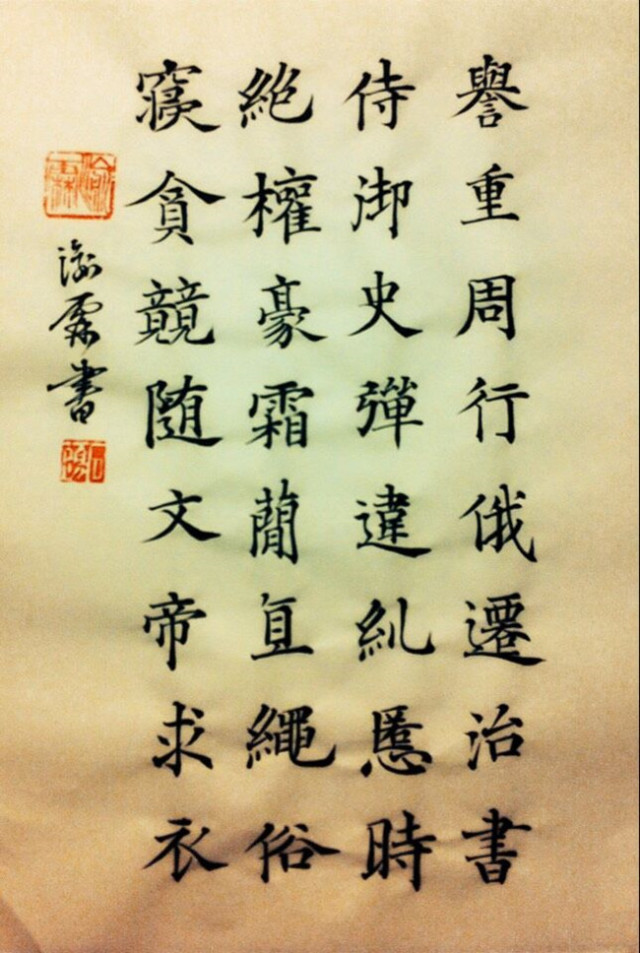 譽重周行俄遷治書
侍御史彈違糺慝時
絶權豪霜簡直繩俗
寢貪競随文帝求衣
渝霖書